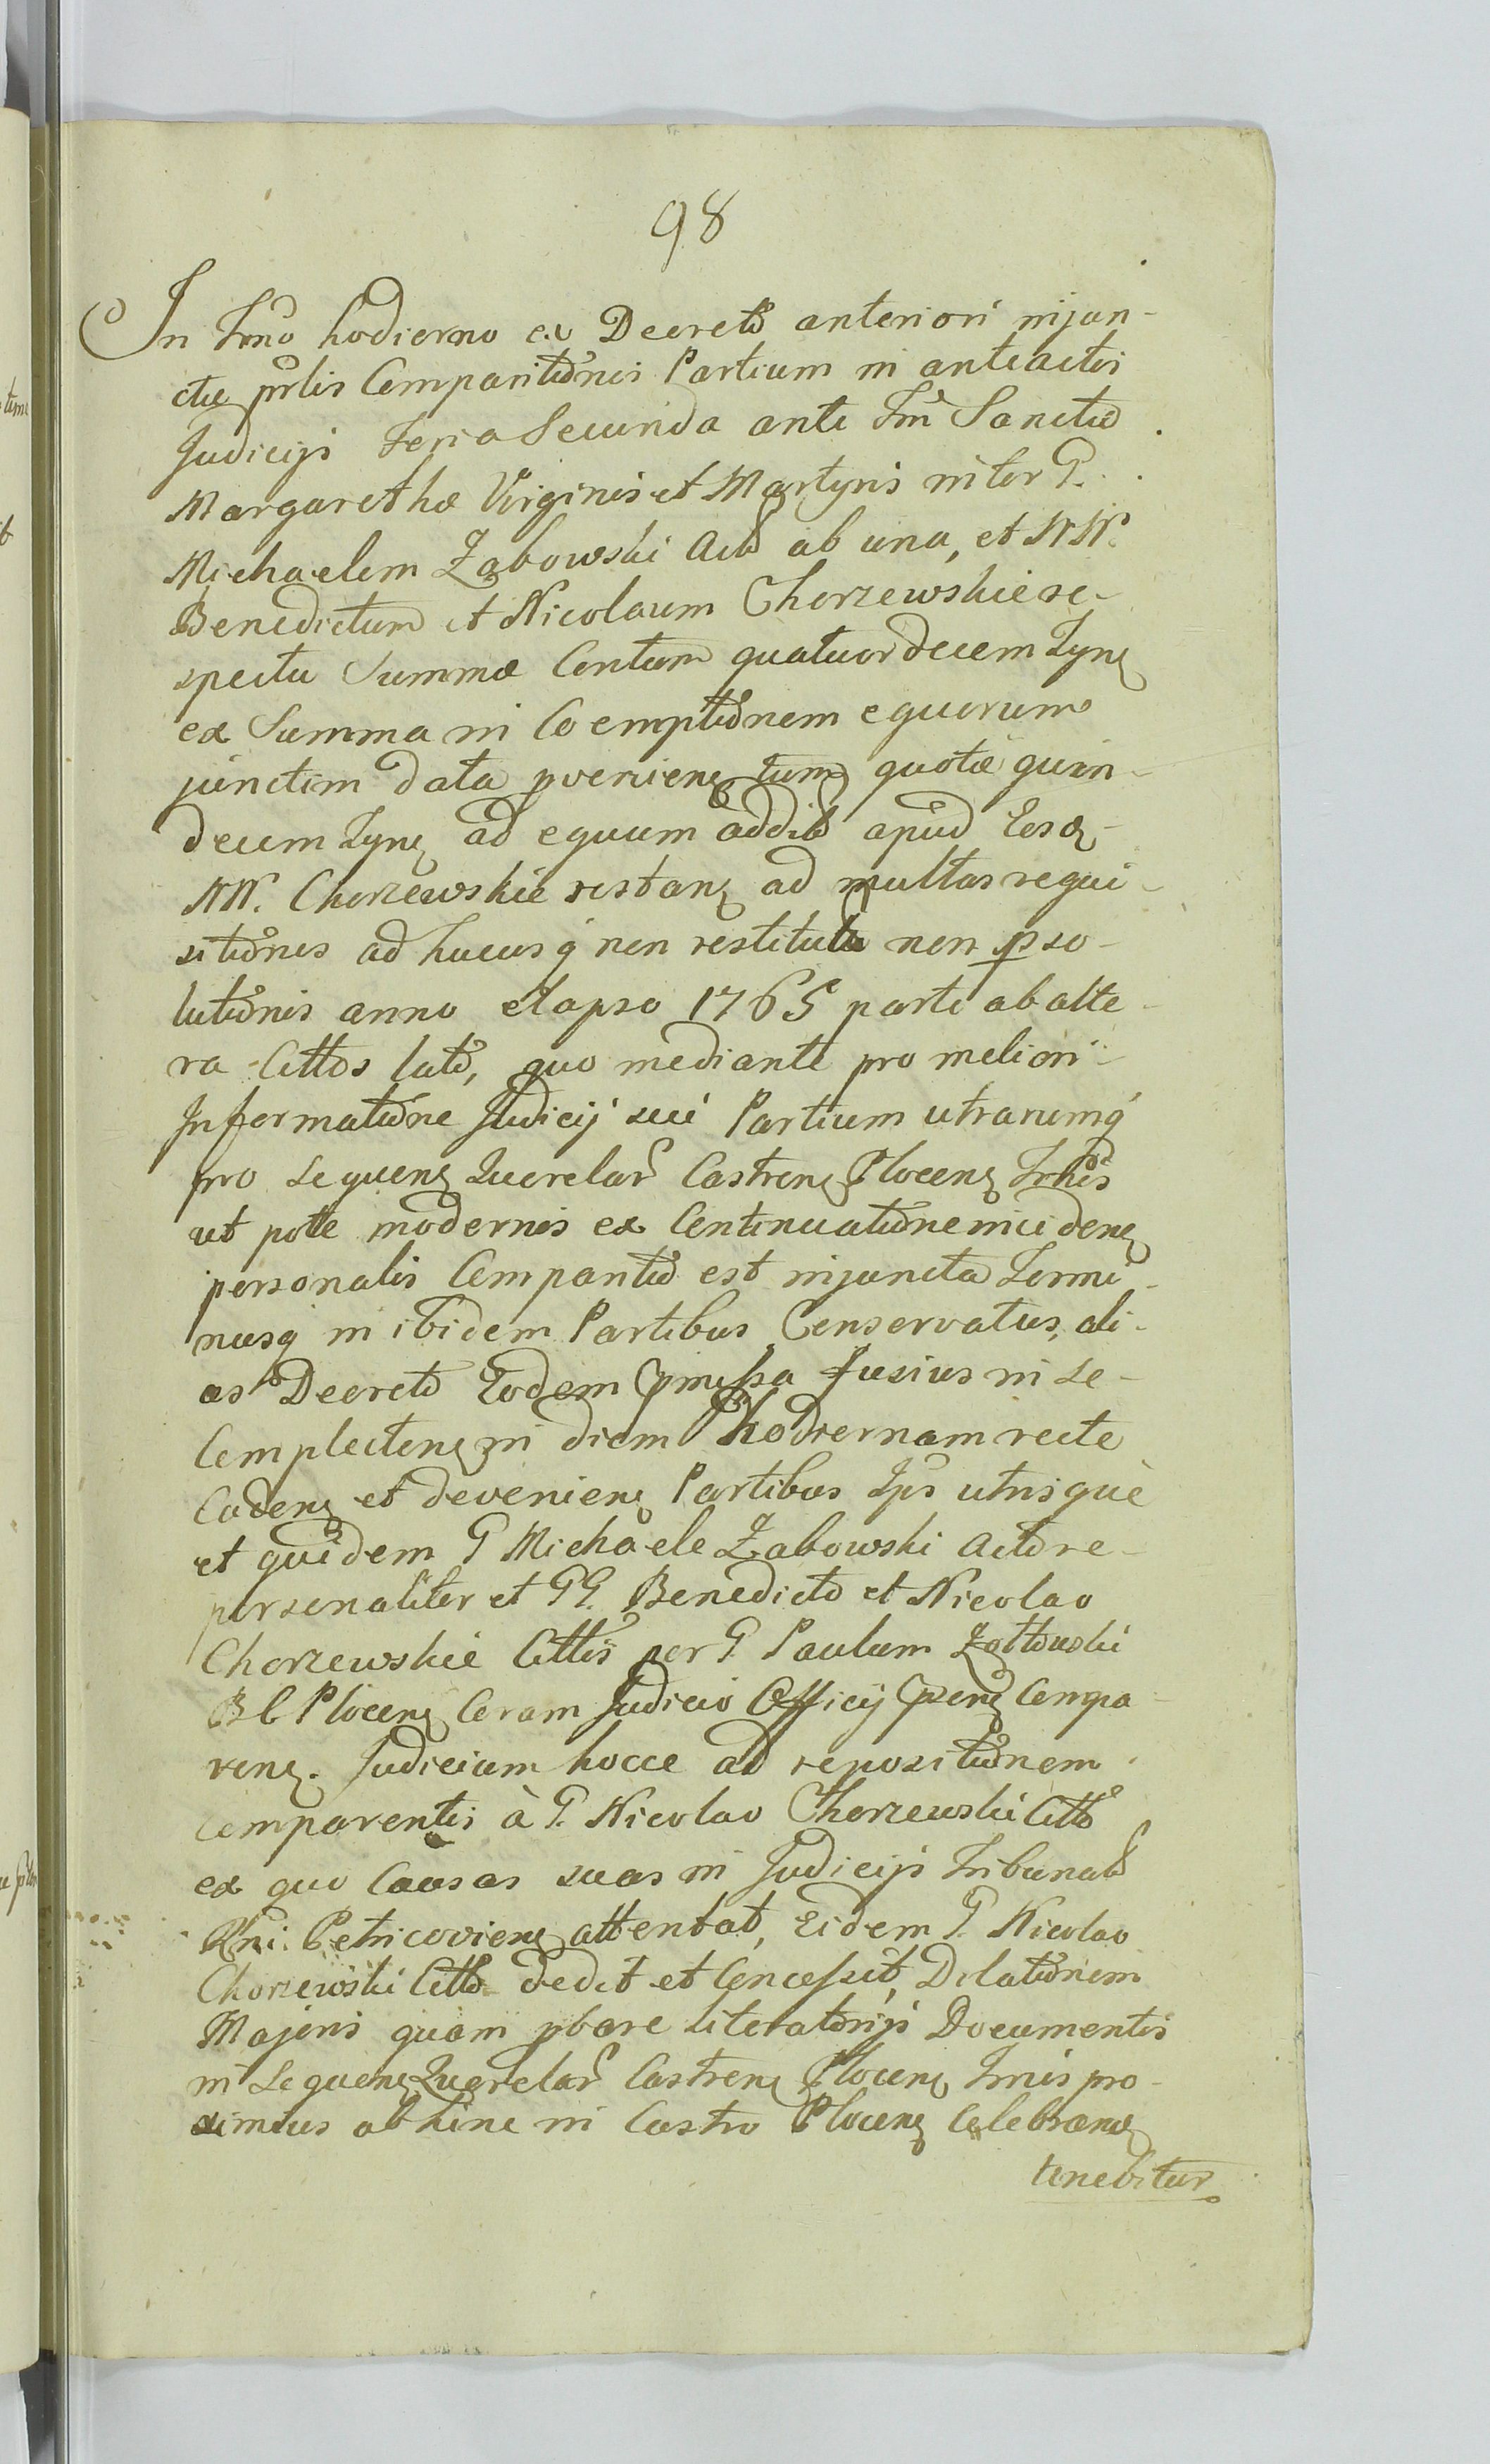 98
In Tmo hodierno ex Decreto anteriori injun-
ctæ prlis Comparitionis Partium in anteactis
Judicijs Feria Secunda ante Fm Sanctæ
Margarethæ Virginis et Martyris inter G.
Michaelem Zabowski Act ab una, et NN.
Benedictum et Nicolaum Chorzewskie re-
spectu Summæ Centum quatuordecem Tyn
ex Summa in Coemptionem equorum
junctim data provenien tum quotæ quin-
decem Tyn ad equum addit apud Eosd
NN. Chorzewskie restan ad multas requi-
sitiones ad hucusq non restituta non pso-
lutionis anno elapso 1765 parte ab alte-
ra Cittos lato, quo mediante pro meliori
Informatione Judicij sui Partium utrarumq
pro Sequen Querelar Castren Plocen Trmis
ut pote modernis ex Continuatione inciden
personalis Comparitio est injuncta Termi-
nusq in ibidem Partibus Conservatus, ali-
as Decreto Eodem pmissa fusius in se
Complecten in diem hodiernam recte
Caden et devenien Partibus Ips utrisque
et quidem G Michaele Zabowski Actore
personaliter et GG. Benedicto et Nicolao
Chorzewskie Cittis per G. Paulum Zottowski
B C Plocen Coram Judicio Officij pzen Compa-
ren. Judicium hocce ad repositionem
comparentis à G. Nicolao Chorzewski Citto
ex quo Causas suas in Judicijs Tribunal
Rni. Petricovien attentat, Eidem G. Nicolao
Chorzewski Citto dedit et Concessit, Dilationem
Majoris quam pbare Literatorijs Documentis
in Sequen Querelar Castren Plocen Tmis pro-
ximius abhinc in Castro Plocen Celebran
tenebitur